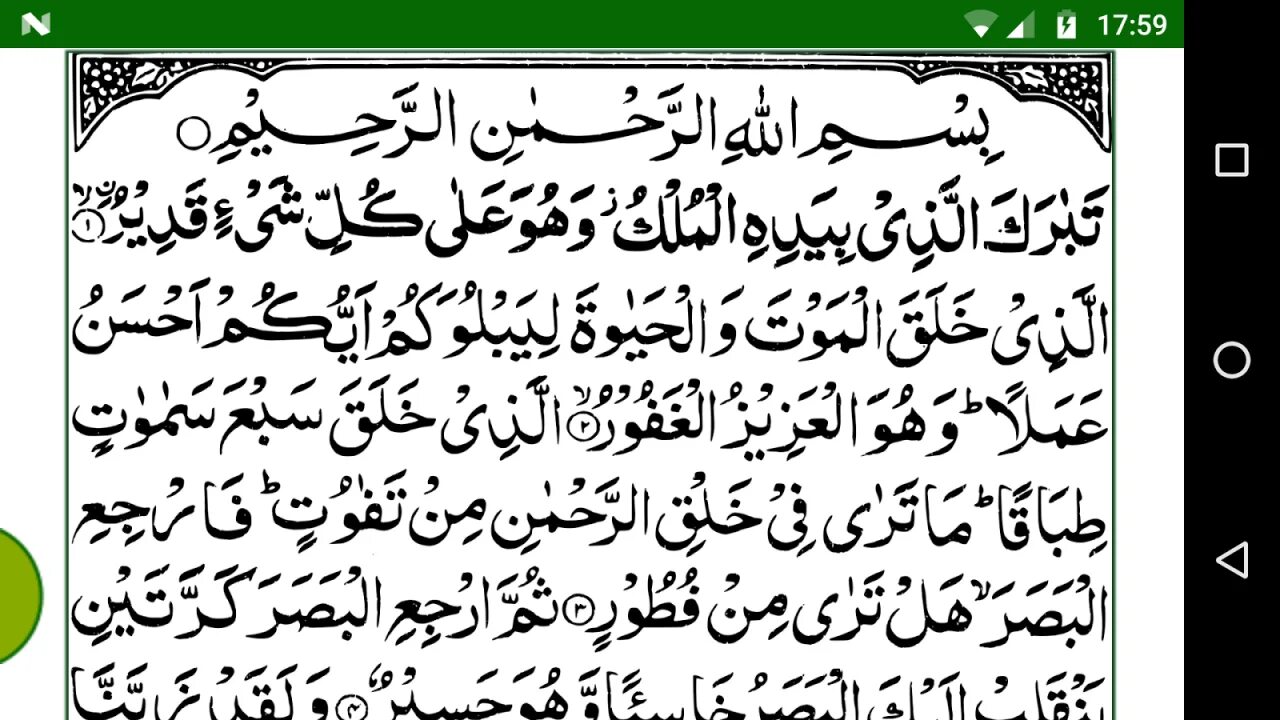 17:59
بِسْمِ اللهِ الرَّحْمٰنِ الرَّحِيْمِ ○
تَبٰرَكَ الَّذِىْ بِيَدِهِ الْمُلْكُ ز وَهُوَ عَلٰى كُلِّ شَىْءٍ قَدِيْرُ ۨ ۙ ١
الَّذِىْ خَلَقَ الْمَوْتَ وَالْحَيٰوةَ لِيَبْلُوَكُمْ اَيُّكُمْ اَحْسَنُ
عَمَلًا ؕ وَهُوَ الْعَزِيْزُ الْغَفُوْرُ ۙ ٢ الَّذِىْ خَلَقَ سَبْعَ سَمٰوٰتٍ
طِبَاقًا ؕ مَا تَرٰى فِىْ خَلْقِ الرَّحْمٰنِ مِنْ تَفٰوُتٍ ؕ فَارْجِعِ
الْبَصَرَ ۙ هَلْ تَرٰى مِنْ فُطُوْرٍ ٣ ثُمَّ ارْجِعِ الْبَصَرَ كَرَّتَيْنِ
يَنْقَلِبْ اِلَيْكَ الْبَصَرُ خَاسِئًا وَّهُوَ حَسِيْرٌ ٤ وَلَقَدْ زَيَّنَّا